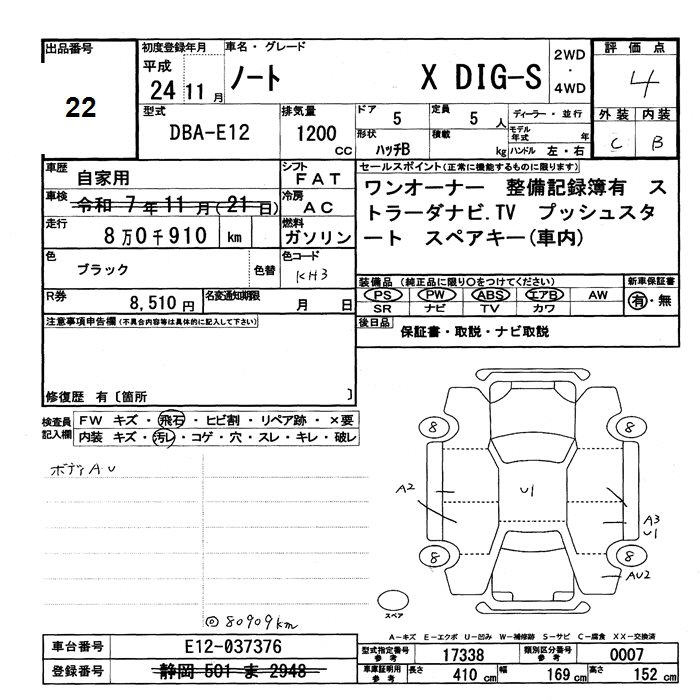 出品番号
22
初度登録年月
平成
24 11 月
車名・グレード
ノート X DIG-S
2WD
・
4WD
評価点
4
外装 内装
C B
型式
DBA-E12
排気量
1200
CC
ドア
5
定員
5 人
形状
ハッチB
積載
kg
ディーラー・並行
モデル年式 年
ハンドル 左・右
車歴
自家用
シフト
FAT
車検
令和 7年11月(21日)
冷房
AC
走行
8万0千910 km
燃料
ガソリン
色
ブラック
色替
色コード
KH3
R券
8,510 円
名変通知期限
月 日
セールスポイント(正常に機能するものに限ります)
ワンオーナー 整備記録簿有 ス
トラーダナビ.TV プッシュスタ
ート スペアキー(車内)
装備品 (純正品に限り○をつけてください)
PS PW ABS エアB AW
SR ナビ TV カワ
新車保証書
有・無
後日品
保証書・取説・ナビ取説
注意事項申告欄(不具合内容等は具体的に記入して下さい)
修復歴 有〔箇所 〕
検査員
記入欄
FW キズ・飛石・ヒビ割・リペア跡・×要
内装 キズ・汚レ・コゲ・穴・スレ・キレ・破レ
ボディAU
◎80909km
8 8
A2
U1
A3
U1
8 8
AU2
スペア
A-キズ E-エクボ U-凹み W-補修跡 S-サビ C-腐食 XX-交換済
車台番号
E12-037376
登録番号
静岡 501 ま 2948
型式指定番号
参考
17338
類別区分番号
参考
0007
車庫証明用
参考
長さ
410 cm
幅
169 cm
高さ
152 cm